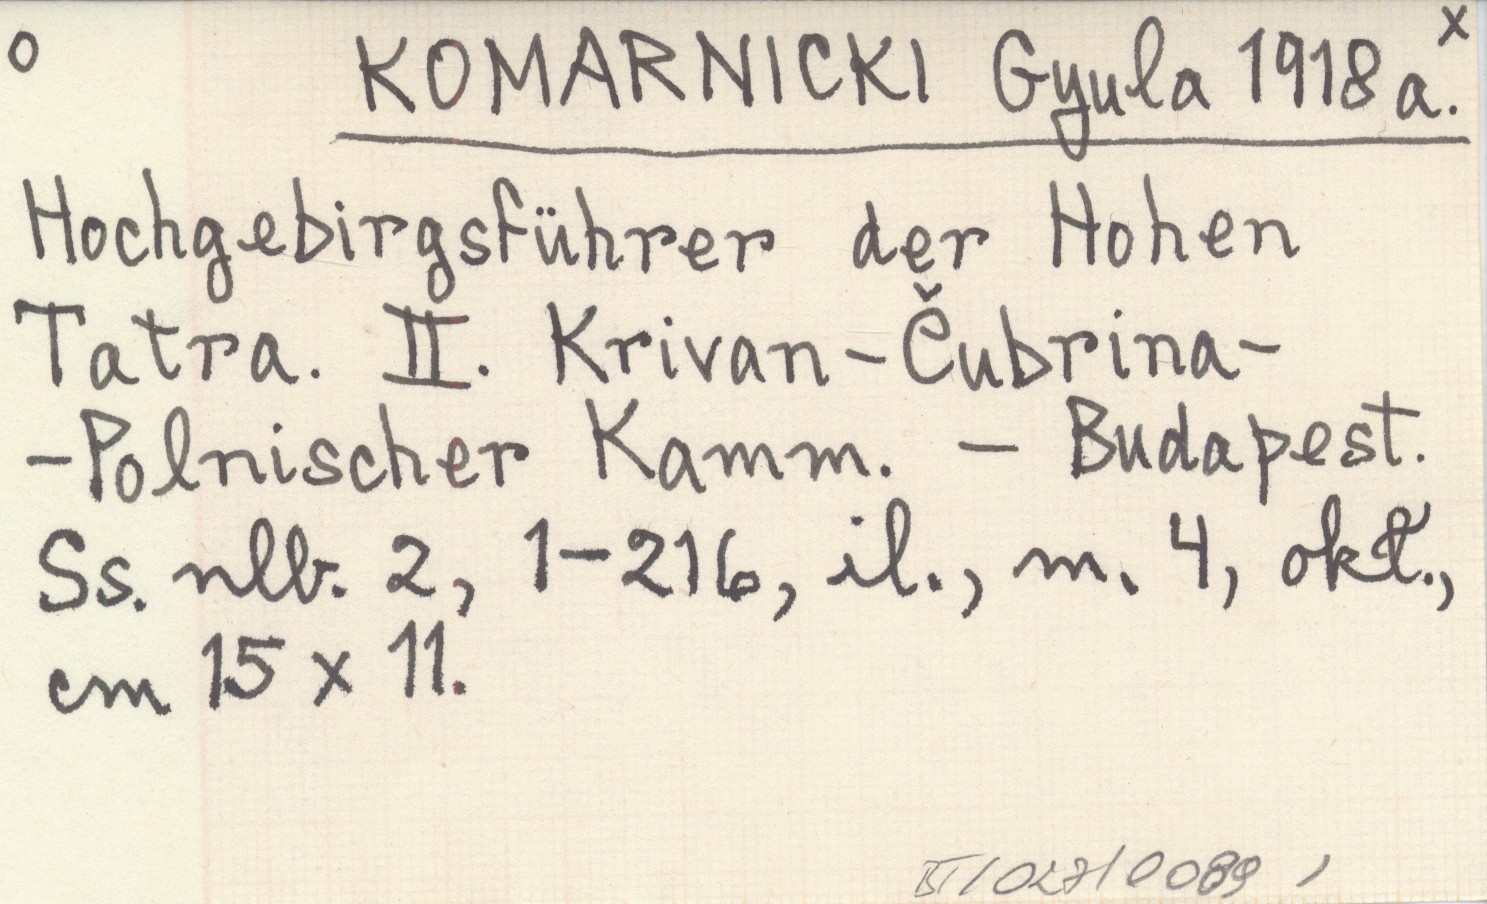 o KOMARNICKI Gyula 1918 a. x
Hochgebirgsführer der Hohen
Tatra. II. Krivan-Čubrina-
-Polnischer Kamm. — Budapest.
Ss. nlb. 2, 1-216, il., m. 4, okł.,
cm 15 x 11.
BT/027/0089